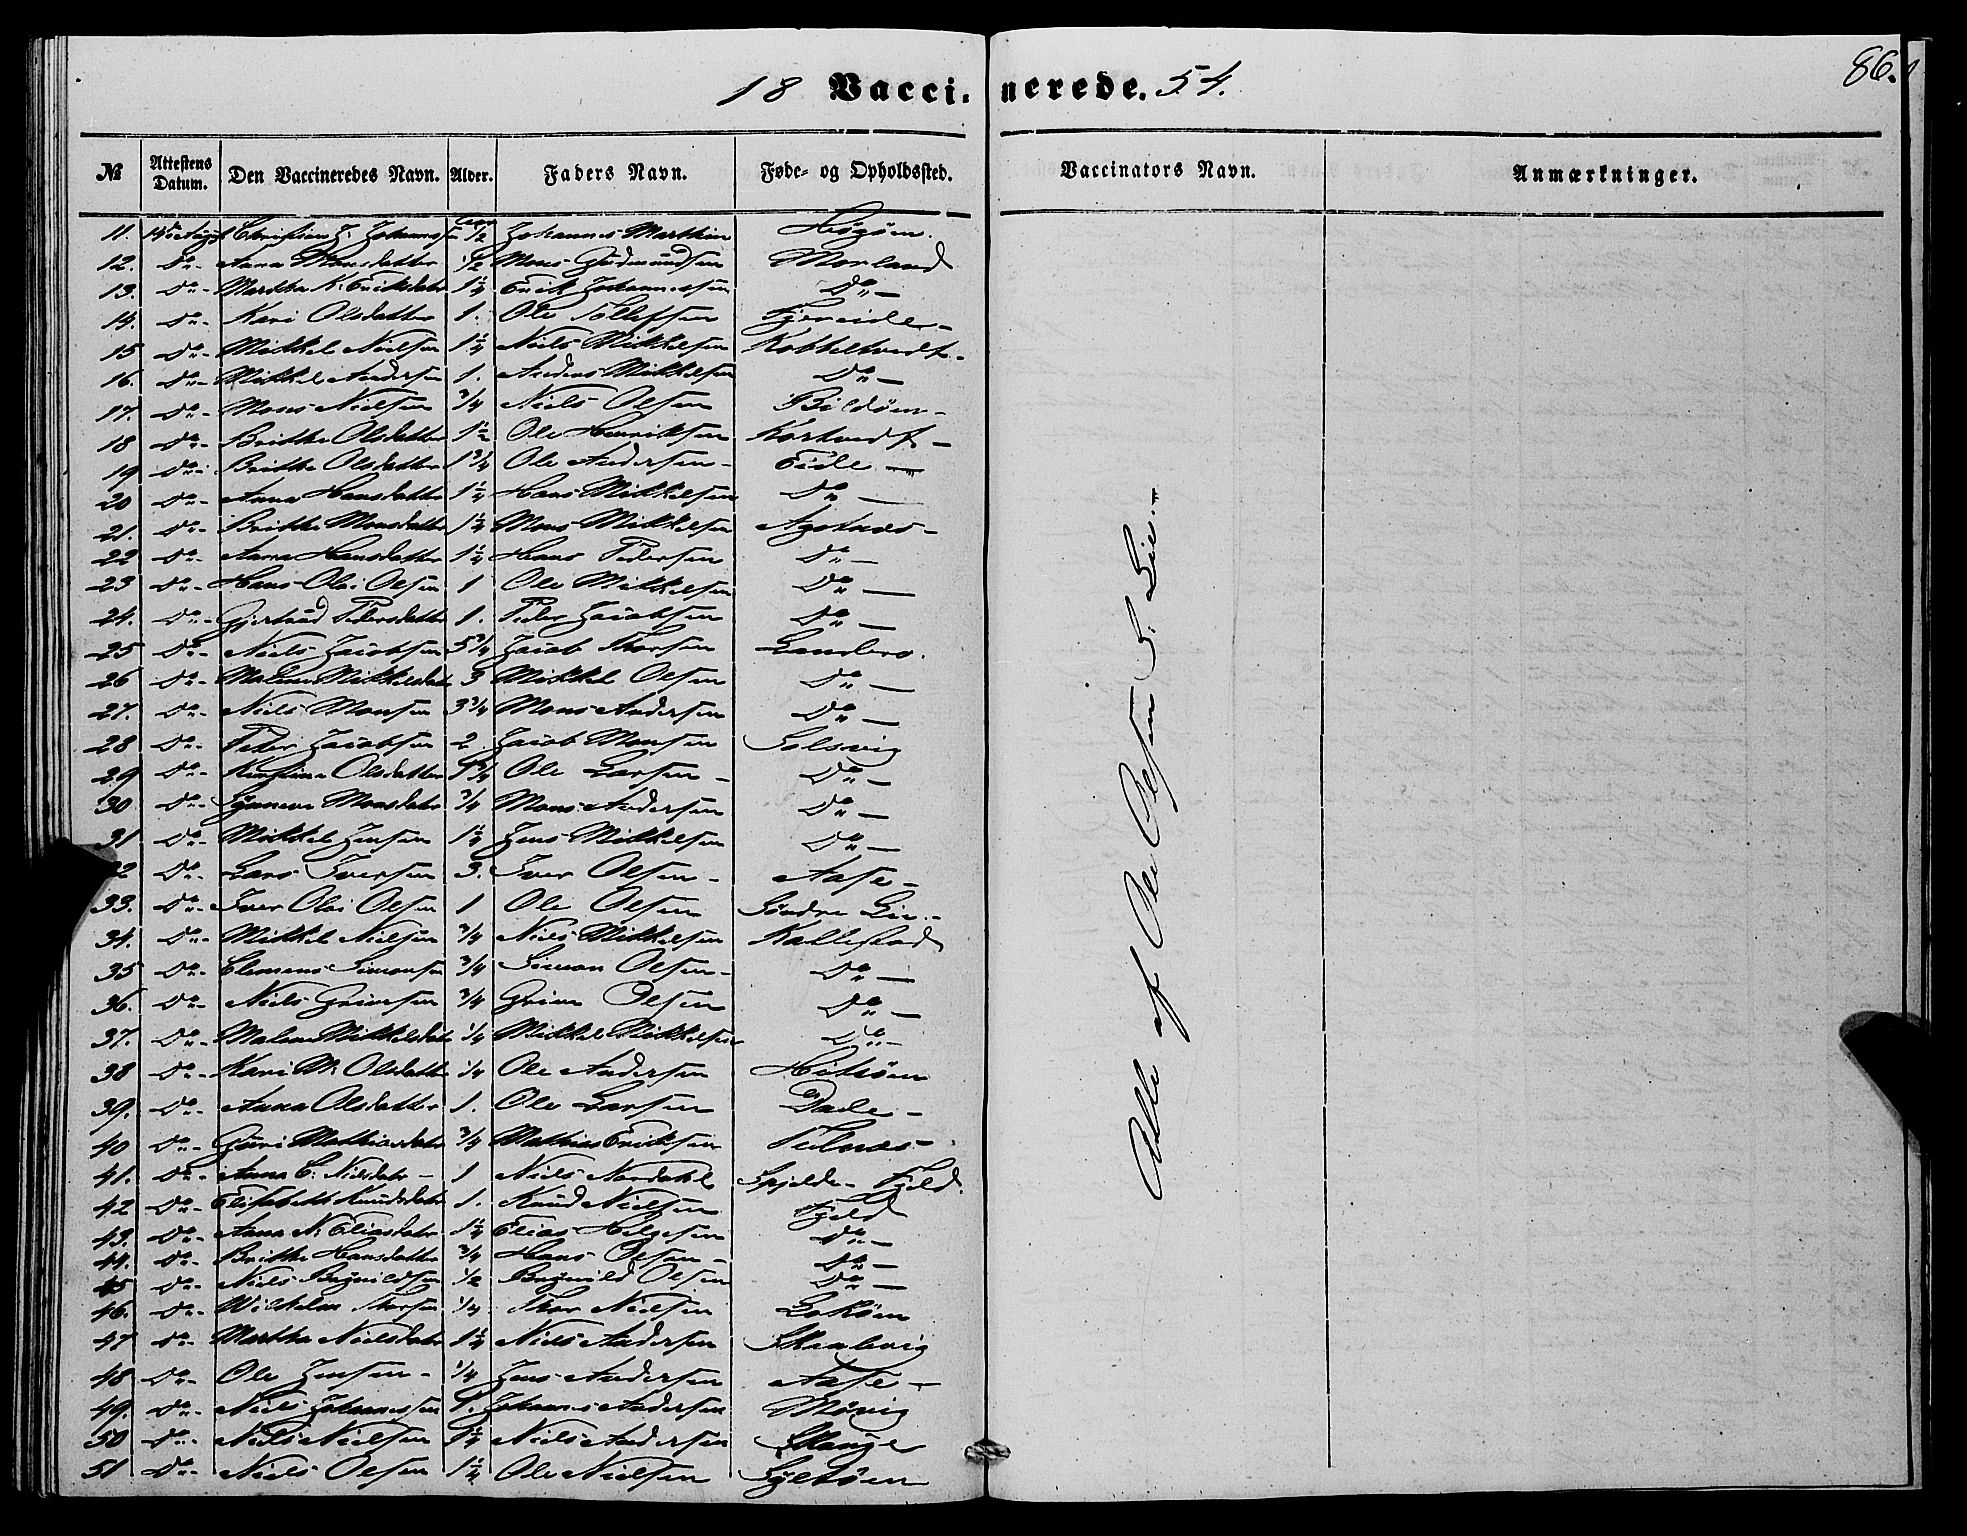 18 Vaccinerede. 54.
86.
№ Attestens Datum. Den Vaccineredes Navn. Alder. Faders Navn. Føde- og Opholdssted. Vaccinators Navn. Anmærkninger.
11. Christian J. Johannessen 1/2 Johannes Marthin
12. Do- Anna Monsdatter 1/2 Mons Gudmundsen Morland
13. Do- Martha K. Eriksdatr 1 1/4 Erik Johannessen Do-
14. Do- Kari Olsdatter 1. Ole Tollefsen Fjereide-
15 Do- Mikkel Nielsen 1 1/4 Niels Mikkelsen Kobbeltvedt-
16. Do- Mikkel Andersen 1. Anders Mikkelsen Do-
17. Do- Mons Nielsen 3/4 Niels Olsen Bildøen-
18 Do- Britha Olsdatter 1 1/2 Ole Henriksen Kortvedt-
19 Do- Britha Olsdatter 1 3/4 Ole Andersen- Eide-
20 Do- Anna Hansdatter 1 1/4 Hans Mikkelsen Do-
21. Do- Britha Monsdatter 1 1/4 Mons Mikkelsen Agotnæs-
22 Do- Anna Hansdatter 1 1/4 Hans Pedersen Do-
23 Do- Hans Olai Olsen 1 Ole Mikkelsen Do-
24. Do- Gjertrud Pedersdatter 1. Peder Jacobsen Do-
25 Do- Niels Jacobsen 5 3/4 Jacob Thorsen Landero.
26 Do- Malene Mikkelsdatr 3 Mikkel Olsen Do-
27. Do- Niels Monsen 3 3/4 Mons Andersen Do-
28 Do- Peder Jacobsen 2 Jacob Monsen Solsvig
29 Do- Kirstine Olsdatter 1 3/4 Ole Larsen- Do-
30 Do- Synneve Monsdatr 3/4 Mons Andersen Do-
31 Do- Mikkel Jensen 1 1/4 Jens Mikkelsen Do-
32 Do- Lars Iversen 3. Iver Olsen- Aase-
33. Do- Iver Olai Olsen 1 Ole Olsen Søndre Lie.-
34. Do- Mikkel Nielsen 3/4 Niels Mikkelsen Kallestad
35 Do- Clemens Simonsen 3/4 Simon Olsen- Do-
36. Do- Niels Grimsen 3/4 Grim Olsen Do-
37. Do- Malene Mikkelsdatr 1/4 Mikkel Mikkelsen Do-
38 Do- Kari M. Olsdatter 1/4 Ole Andersen
39. Do- Anna Olsdatter 1. Ole Larsen Dale-
40 Do- Guri Mathiasdatr 3/4 Mathias Eriksen Tulnæs-
41. Do- Anna C. Nielsdatr- 1 Niels Nordahl Spjelde- Fjeld.
42 Do- Elisabeth Knudsdatr 1. Knud Nielsen Fjeld
43. Do- Anna N. Eliasdatr 1 1/4 Elias Helgesen Do-
44. Do- Britha Hansdatter 3/4 Hans Olsen- Do-
45 Do- Niels Brynildsen 1/2 Brynild Olsen Do-
46. Do- Wilhelm Thorsen 1/4 Thor Nielsen Lokøen
47 Do- Martha Nielsdatr 1 1/4 Niels Andersen Skaalevig
48 Do- Ole Jensen- 1/4 Jens Andersen Aase-
49. Do- Niels Johannessen 1. Johannes Andersen Møvig
50 Do- Niels Nielsen 1 1/4 Niels Andersen Skauge
51 Do- Niels Olsen 1 1/4 Ole Nielsen Syltøen
Alle af Ole Olsen S. Lie.-